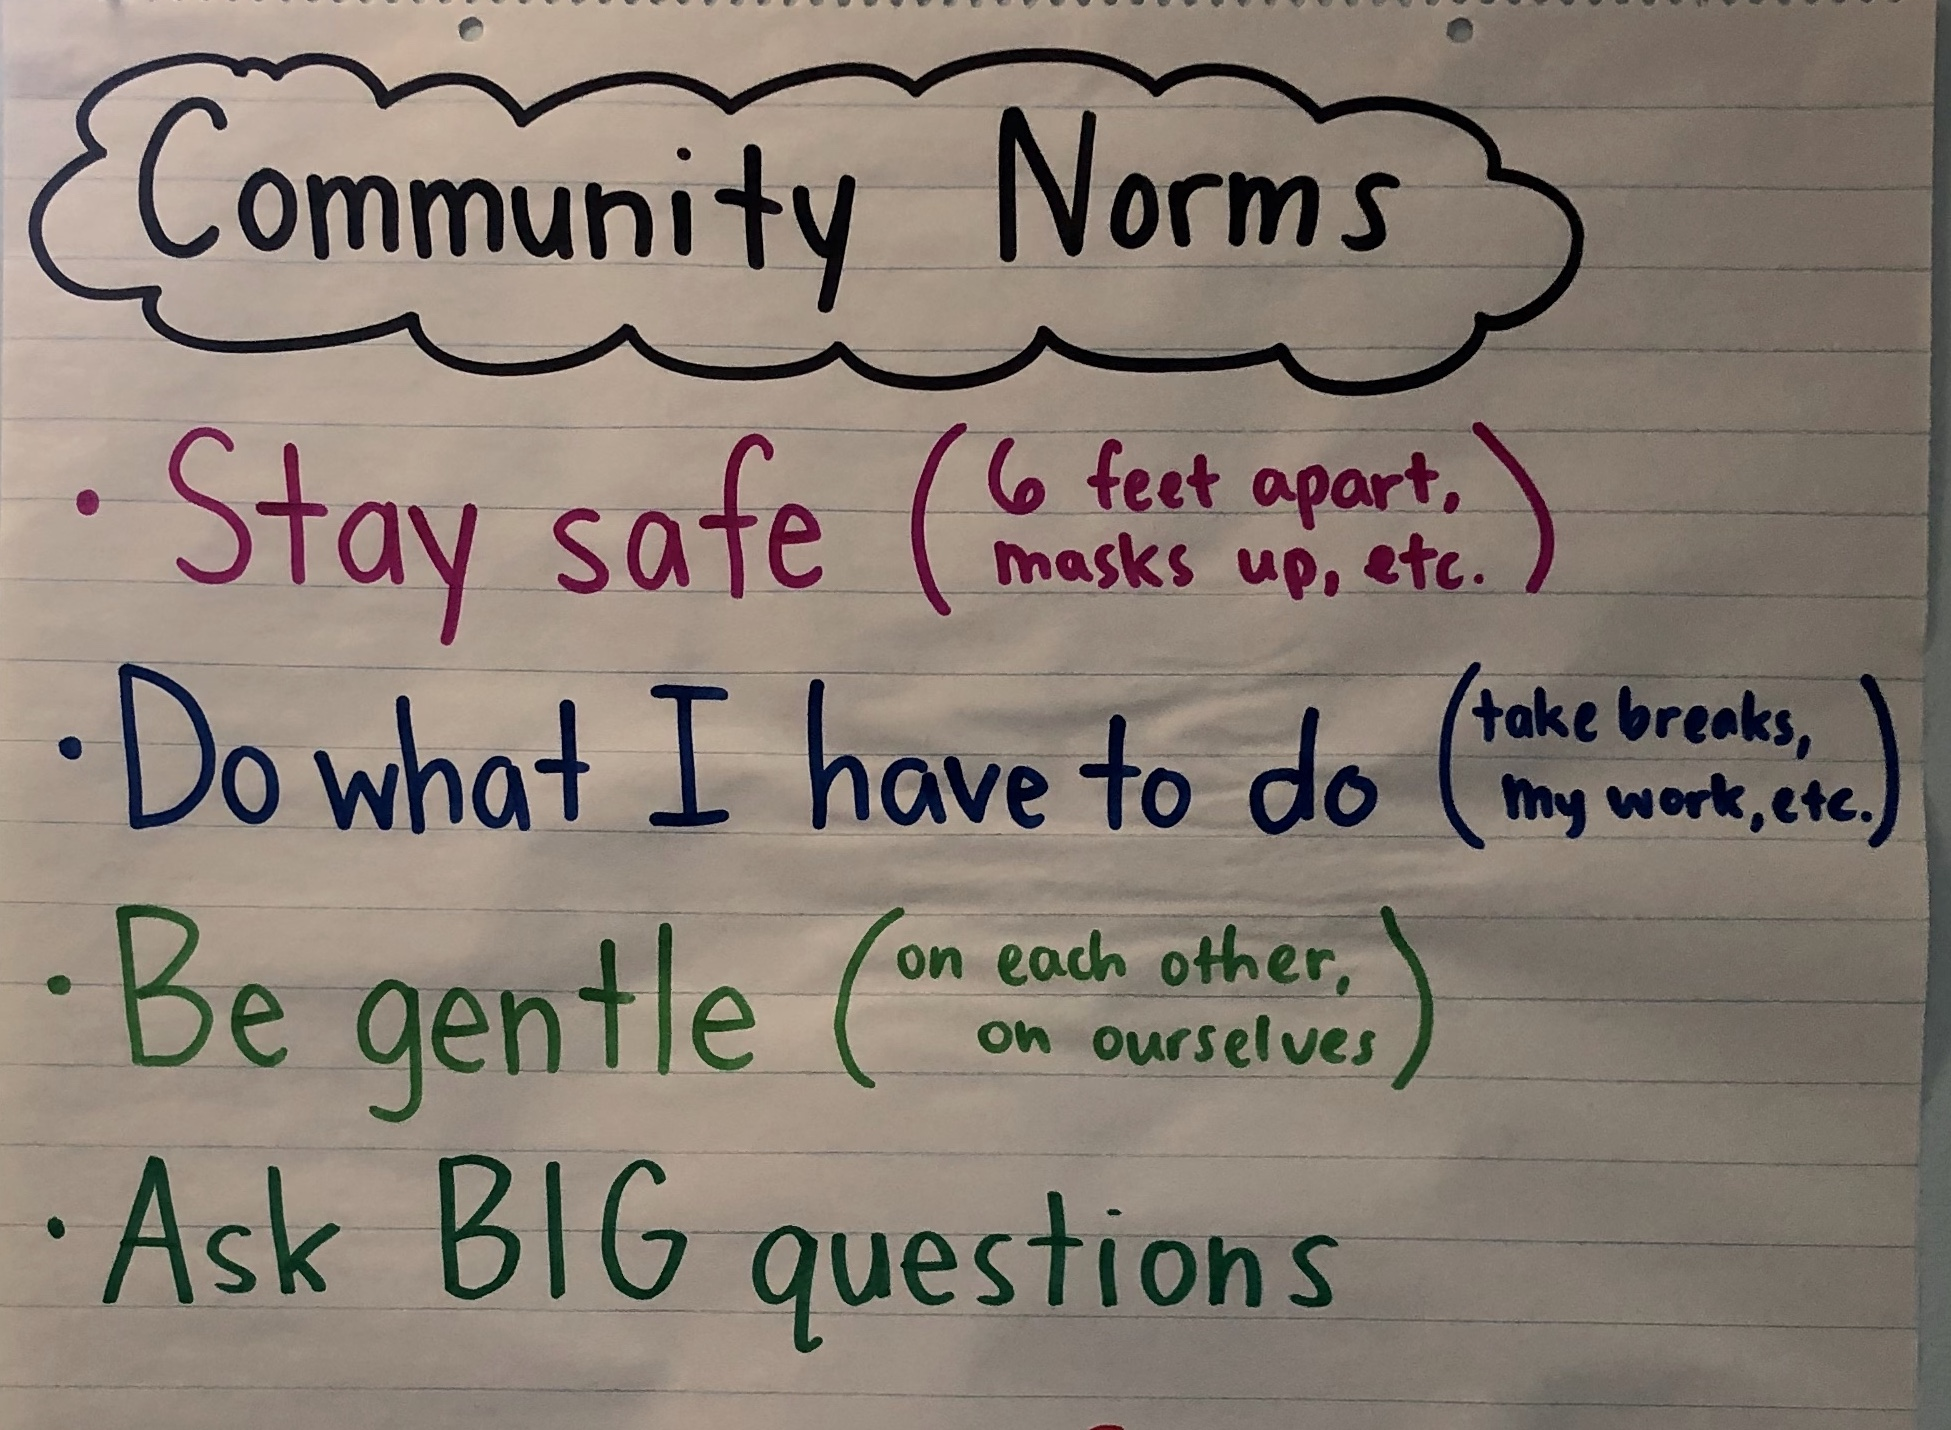 Community Norms
• Stay safe (6 feet apart,
masks up, etc.)
• Do what I have to do (take breaks,
my work, etc.)
• Be gentle (on each other,
on ourselves)
• Ask BIG questions